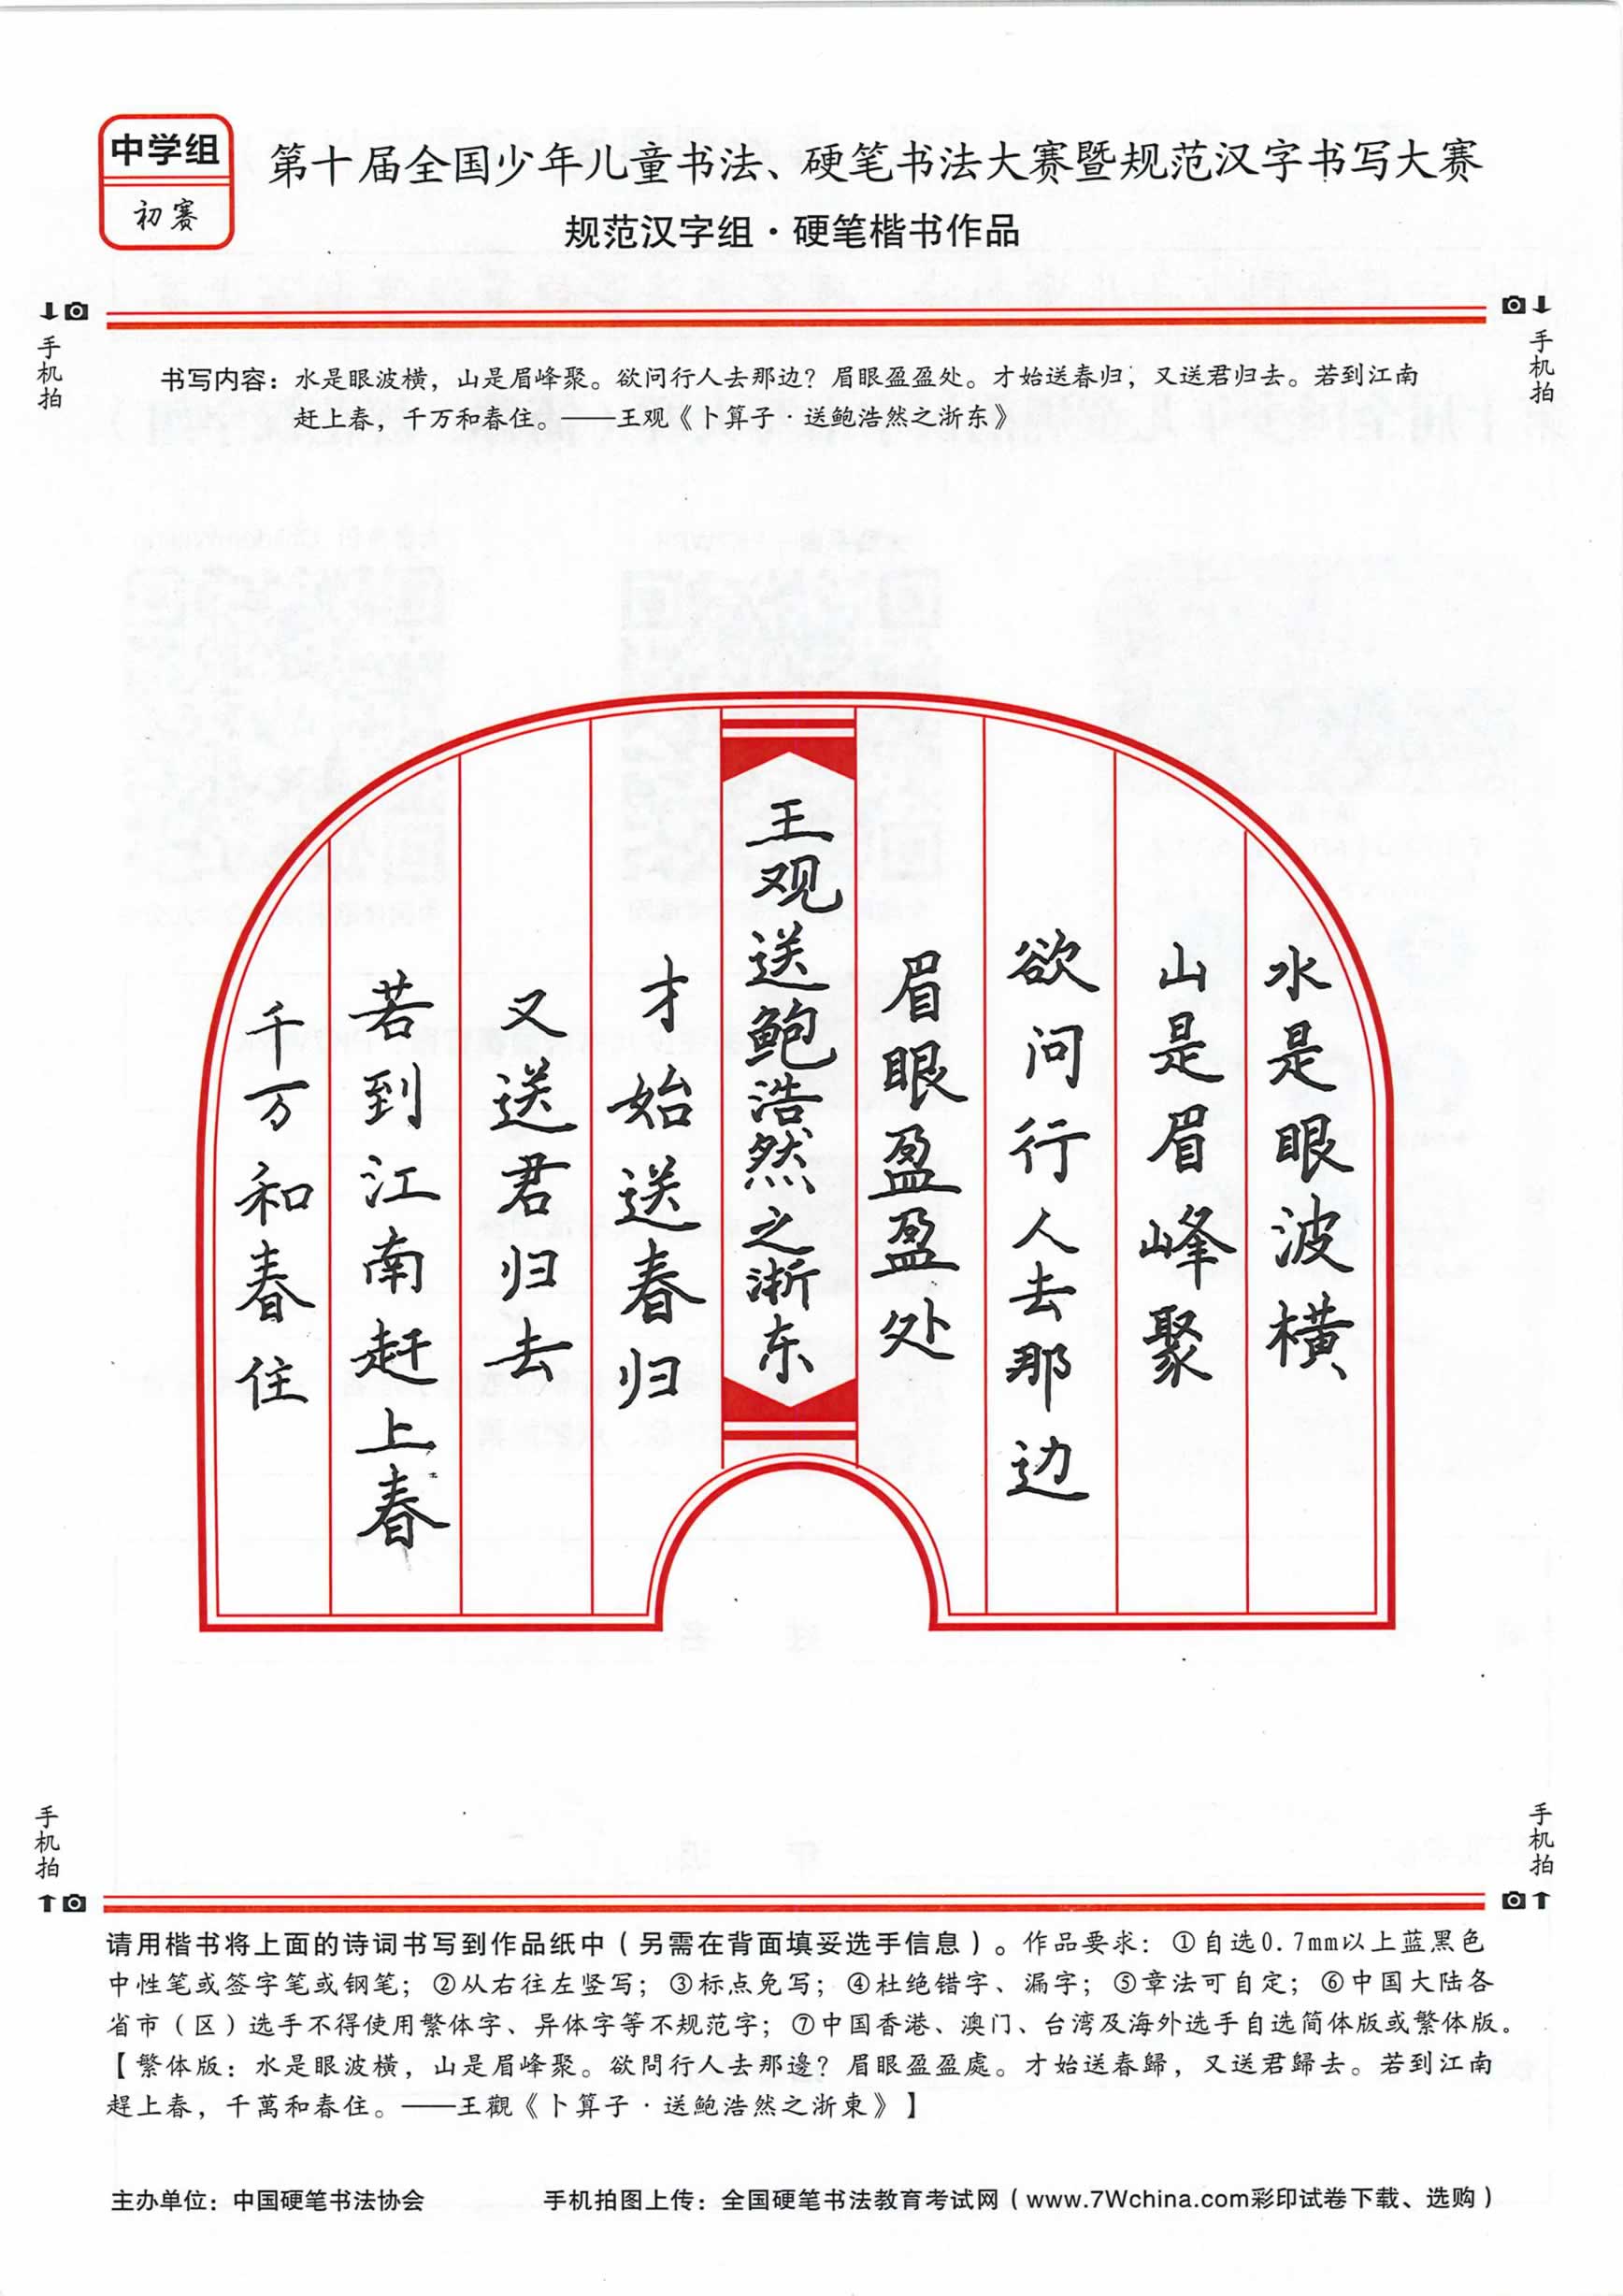 中学组
初赛
第十届全国少年儿童书法、硬笔书法大赛暨规范汉字书写大赛
规范汉字组·硬笔楷书作品
手机拍
手机拍
书写内容：水是眼波横，山是眉峰聚。欲问行人去那边？眉眼盈盈处。才始送春归，又送君归去。若到江南
赶上春，千万和春住。——王观《卜算子·送鲍浩然之浙东》
水是眼波横
山是眉峰聚
欲问行人去那边
眉眼盈盈处
王观送鲍浩然之浙东
才始送春归
又送君归去
若到江南赶上春
千万和春住
手机拍
手机拍
请用楷书将上面的诗词书写到作品纸中（另需在背面填妥选手信息）。作品要求：①自选0.7mm以上蓝黑色
中性笔或签字笔或钢笔；②从右往左竖写；③标点免写；④杜绝错字、漏字；⑤章法可自定；⑥中国大陆各
省市（区）选手不得使用繁体字、异体字等不规范字；⑦中国香港、澳门、台湾及海外选手自选简体版或繁体版。
【繁体版：水是眼波横，山是眉峰聚。欲問行人去那邊？眉眼盈盈處。才始送春歸，又送君歸去。若到江南
趕上春，千萬和春住。——王觀《卜算子·送鮑浩然之浙東》】
主办单位：中国硬笔书法协会
手机拍图上传：全国硬笔书法教育考试网（www.7Wchina.com彩印试卷下载、选购）